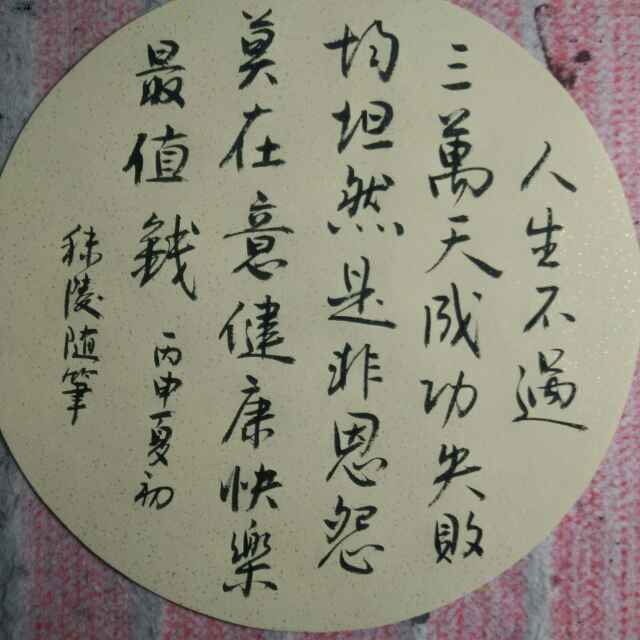 人生不過
三萬天成功失敗
均坦然是非恩怨
莫在意健康快樂
最值錢
丙申夏初
秣陵随筆